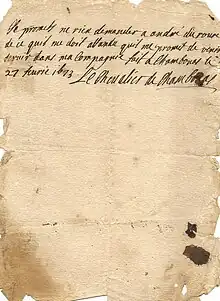 Je promets ne rien demander a andre du roure
de ce quil me doit allande quil me promet de venir
servir dans ma Compagnie fait a Chambonas le
27 feurie 1693 Le Chevalier de Chambonas